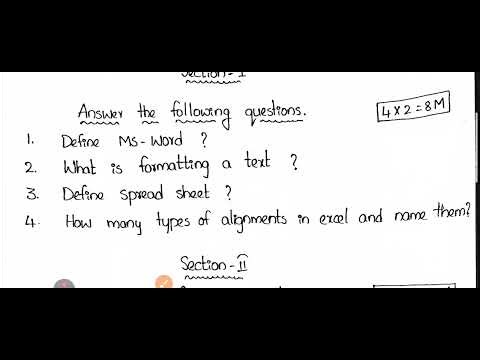 Section - I
Answer the following questions.
4 x 2 = 8M
1. Define Ms-Word ?
2. What is formatting a text ?
3. Define spread sheet ?
4. How many types of alignments in excel and name them?
Section - II